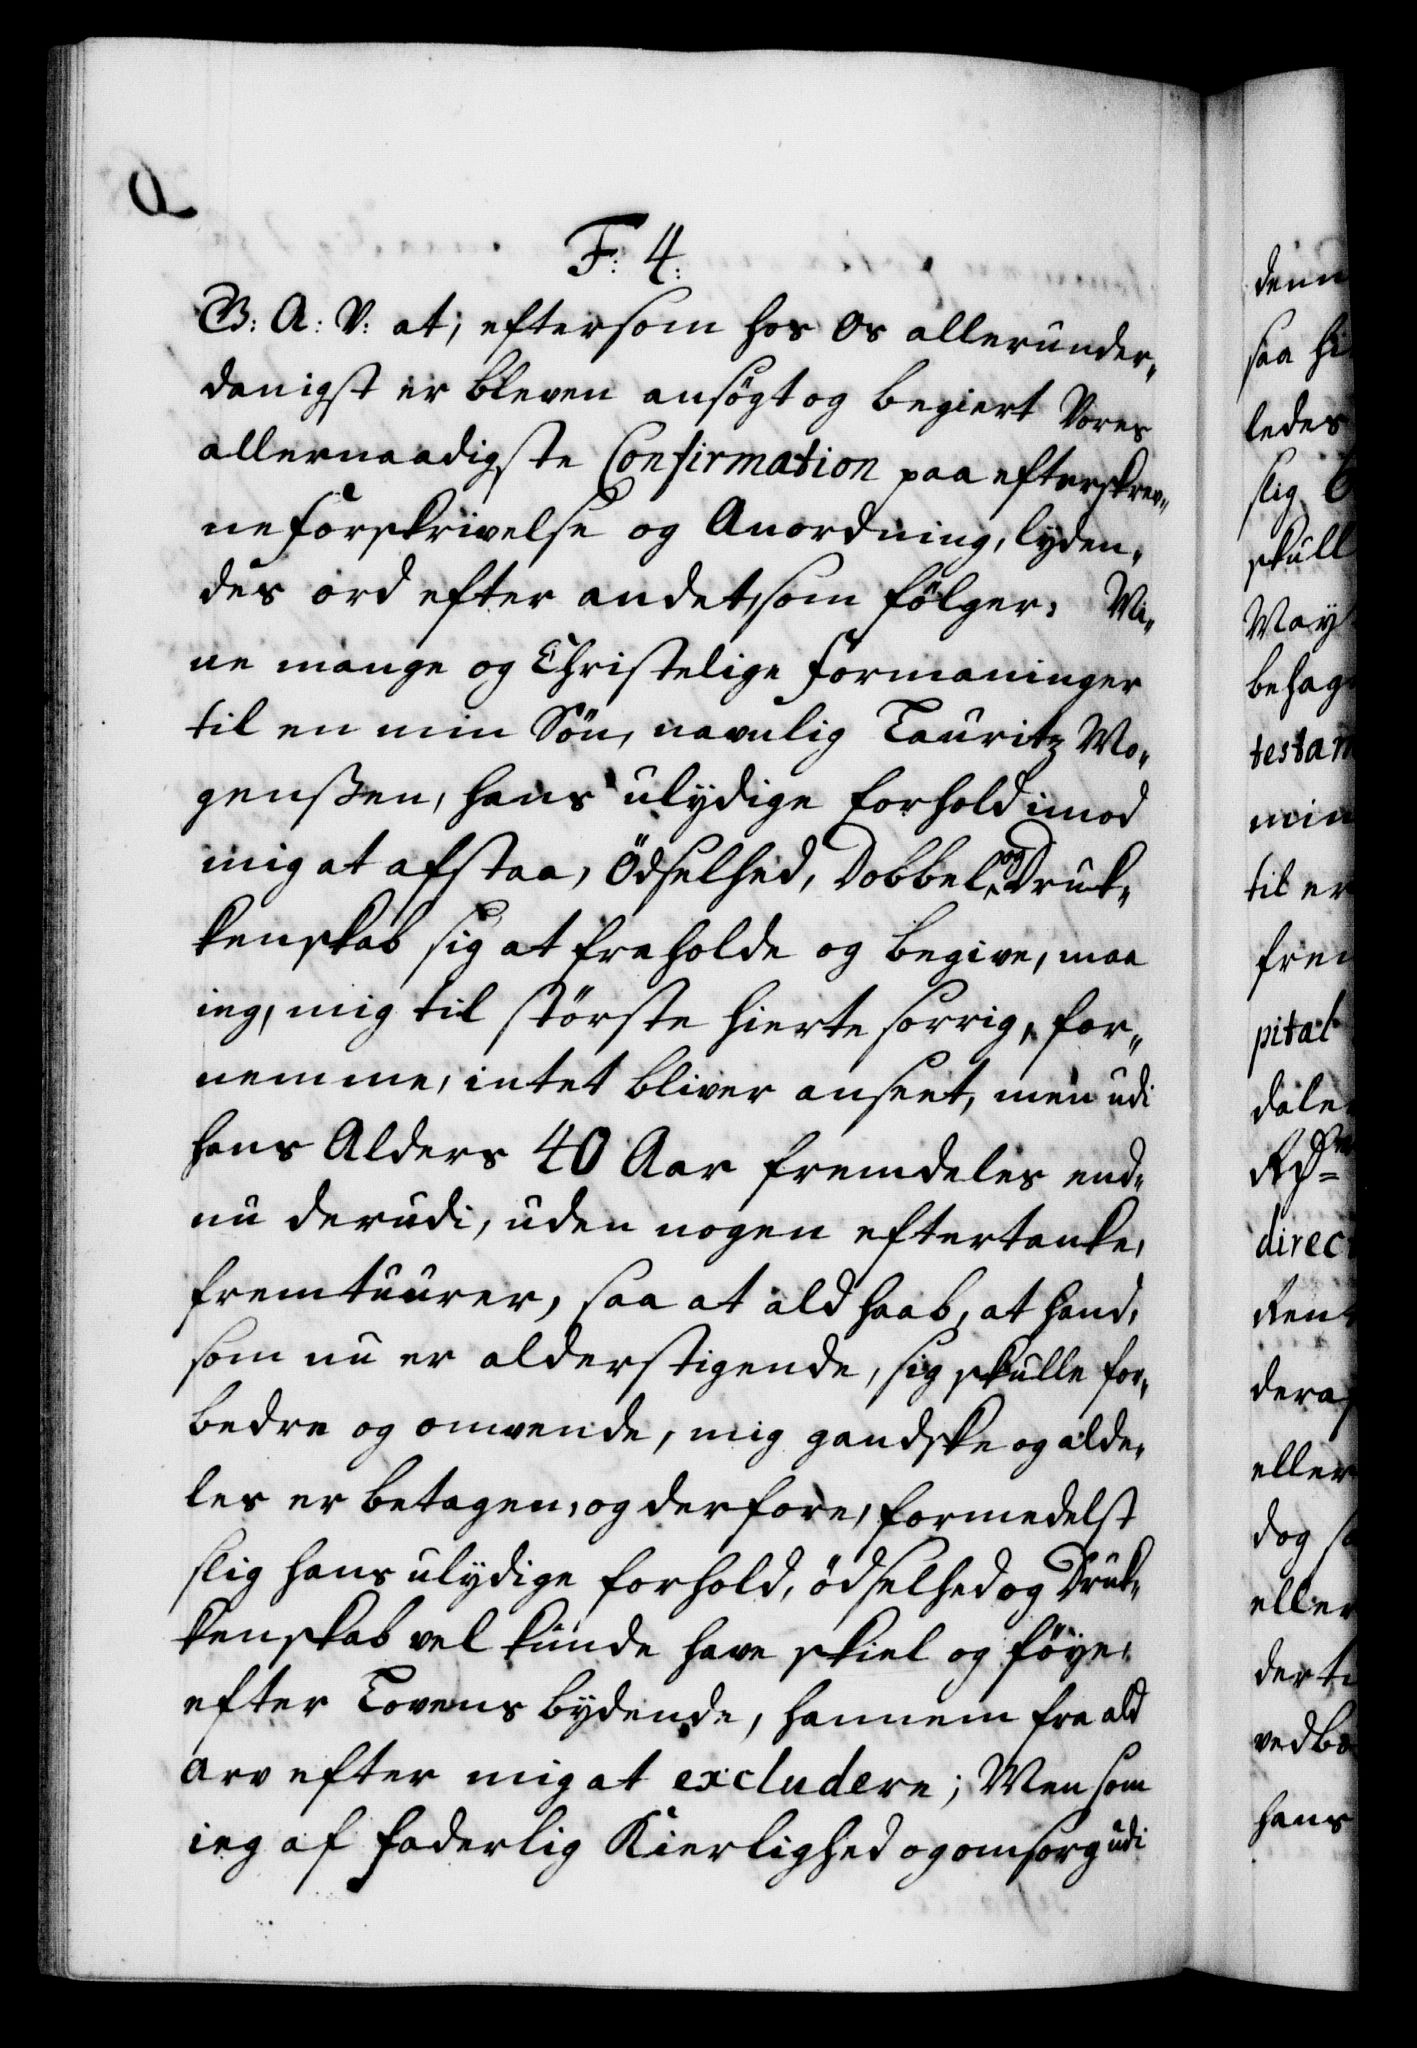 F: 4.
G: A: V: at, eftersom hos Os allerunder„
danigst er bleven ansögt og begiert Vores
allernaadigste Confirmation paa efterskrev„
ne forskrivelse og Anordning, lyden„
des ord efter andet, som fölger: Mi„
ne mange og Christelige formaninger
til en min Sön, navnlig Lauritz Mo„
genßen, hans ulydige forhold imod
mig at afstaa, ödselhed, Dobbel, og Druk„
kenskab sig at fraholde og begive, maa
ieg, mig til störste hierte sorrig, for„
nemme, intet bliver anseet, men udi
hans Alders 40 Aar fremdeles end„
nu derudi, uden nogen eftertanke,
fremtuurer, saa at ald haab, at hand,
som nu er alderstigende, sig skulle for„
bedre og omvende, mig gandske og alde„
les er betagen, og derfore, formedelst
slig hans ulydige forhold, ödselhed og Druk„
kenskab vel kunde have skiel og föye,
efter Lovens bydende, hannem fra ald
arv efter mig at excludere; Men som
ieg af faderlig Kierlighed og omsorg udi
denn
saa hi
ledes
slig
skull
May
behag
testam
min
til er
frem
pital
daler
Rdr
direc
Rent
deraf
eller
dog s
eller
dert
vedb
hans